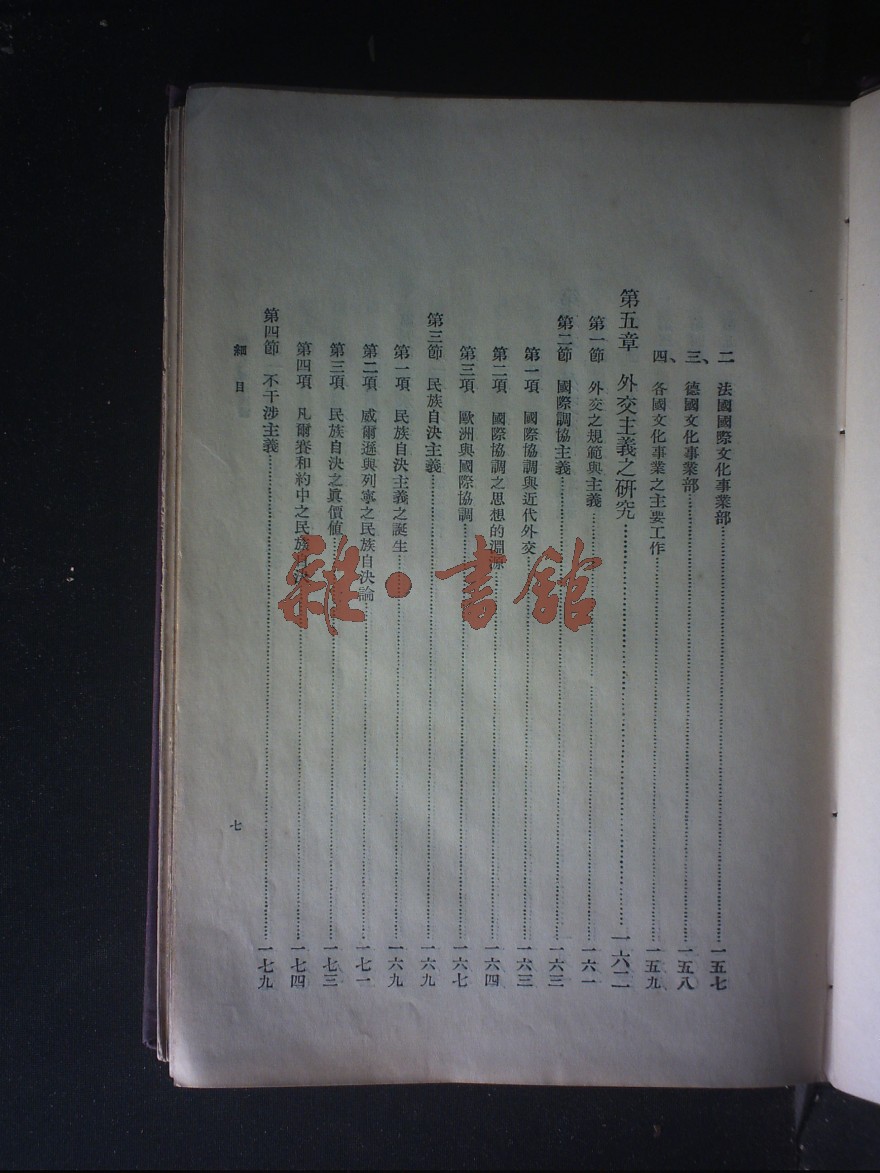 二　法國國際文化事業部……一五七
三、德國文化事業部……一五八
四、各國文化事業之主要工作……一五九
第五章　外交主義之研究……一六二
第一節　外交之規範與主義……一六一
第二節　國際調協主義……一六三
第一項　國際協調與近代外交……一六三
第二項　國際協調之思想的淵源……一六四
第三項　歐洲與國際協調……一六七
第三節　民族自決主義……一六九
第一項　民族自決主義之誕生……一六九
第二項　威爾遜與列寧之民族自決論……一七一
第三項　民族自決之真價值……一七三
第四項　凡爾賽和約中之民族自決……一七四
第四節　不干涉主義……一七九
細　目
七
雜·書館